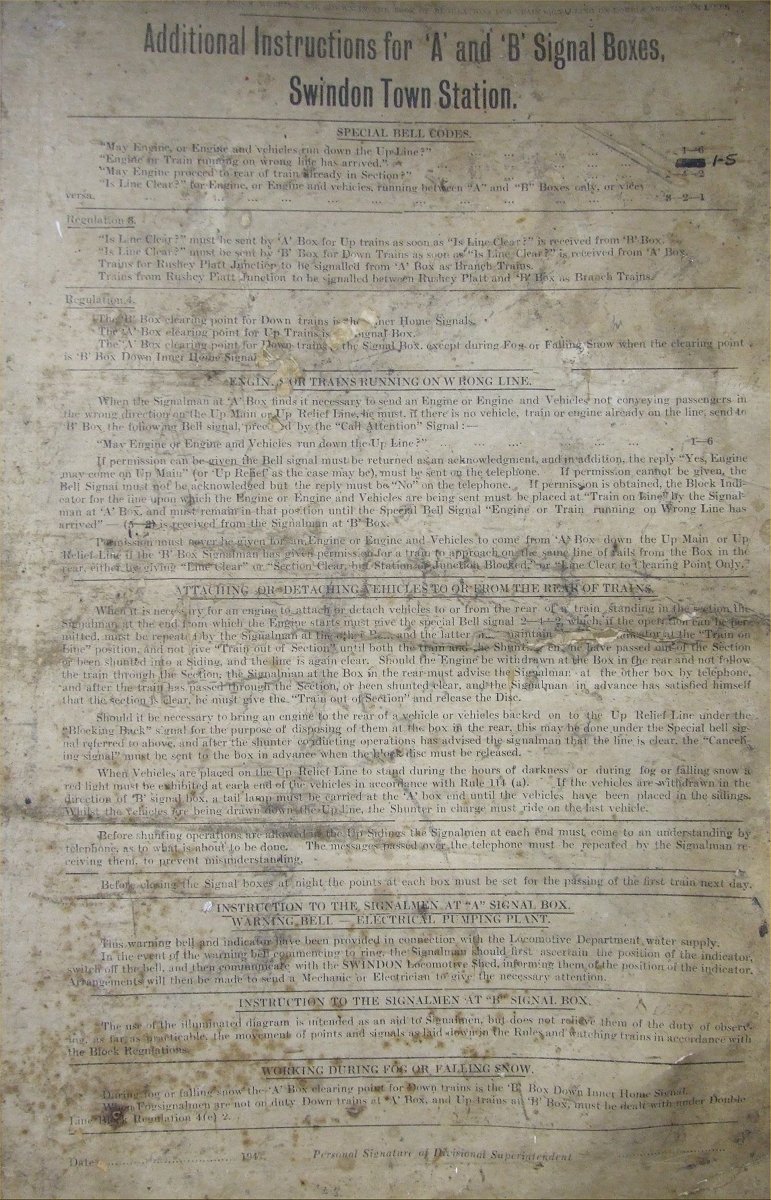 Additional Instructions for 'A' and 'B' Signal Boxes,
Swindon Town Station.
SPECIAL BELL CODES.
"May Engine, or Engine and vehicles run down the Up Line?" ... ... ... 1—6
"Engine or Train running on wrong line has arrived." ... ... ... 1-5
"May Engine proceed to rear of train already in Section?" ... ... ... 2—4—2
"Is Line Clear?" for Engine, or Engine and vehicles, running between "A" and "B" Boxes only, or vice
versa. ... ... ... ... ... ... ... 3—2—1
Regulation 3.
"Is Line Clear?" must be sent by 'A' Box for Up trains as soon as "Is Line Clear?" is received from 'B' Box.
"Is Line Clear?" must be sent by 'B' Box for Down Trains as soon as "Is Line Clear?" is received from 'A' Box.
Trains for Rushey Platt Junction to be signalled from 'A' Box as Branch Trains.
Trains from Rushey Platt Junction to be signalled between Rushey Platt and 'B' Box as Branch Trains.
Regulation 4.
The 'B' Box clearing point for Down trains is the Inner Home Signals.
The 'A' Box clearing point for Up Trains is Signal Box.
The 'A' Box clearing point for Down trains, the Signal Box, except during Fog or Falling Snow when the clearing point
is 'B' Box Down Inner Home Signal.
ENGINES OR TRAINS RUNNING ON WRONG LINE.
When the Signalman at 'A' Box finds it necessary to send an Engine or Engine and Vehicles not conveying passengers in
the wrong direction on the Up Main or Up Relief Line, he must, if there is no vehicle, train or engine already on the line, send to
'B' Box the following Bell signal, preceded by the "Call Attention" Signal:—
"May Engine or Engine and Vehicles run down the Up Line?" ... ... ... ... ... 1—6
If permission can be given the Bell signal must be returned as an acknowledgment, and in addition, the reply "Yes, Engine
may come on Up Main" (or 'Up Relief' as the case may be), must be sent on the telephone. If permission cannot be given, the
Bell Signal must not be acknowledged but the reply must be "No" on the telephone. If permission is obtained, the Block Indi-
cator for the line upon which the Engine or Engine and Vehicles are being sent must be placed at "Train on Line" by the Signal-
man at 'A' Box, and must remain in that position until the Special Bell Signal "Engine or Train running on Wrong Line has
arrived" — is received from the Signalman at 'B' Box.
Permission must never be given for an Engine or Engine and Vehicles to come from 'A' Box down the Up Main or Up
Relief Line if the 'B' Box Signalman has given permission for a train to approach on the same line of rails from the Box in the
rear, either by giving "Line Clear" or "Section Clear, but Station or Junction Blocked," or "Line Clear to Clearing Point Only."
ATTACHING OR DETACHING VEHICLES TO OR FROM THE REAR OF TRAINS.
When it is necessary for an engine to attach or detach vehicles to or from the rear of a train standing in the section the
Signalman at the end from which the Engine starts must give the special Bell signal which, if the operation can be per-
mitted, must be repeated by the Signalman at the other Box, and the latter must maintain at the "Train on
Line" position, and not give "Train out of Section" until both the train and the Shunting engine have passed out of the Section
or been shunted into a Siding, and the line is again clear. Should the Engine be withdrawn at the Box in the rear and not follow
the train through the Section, the Signalman at the Box in the rear must advise the Signalman at the other box by telephone,
and after the train has passed through the Section, or been shunted clear, and the Signalman in advance has satisfied himself
that the section is clear, he must give the "Train out of Section" and release the Disc.
Should it be necessary to bring an engine to the rear of a vehicle or vehicles backed on to the Up Relief Line under the
"Blocking Back" signal for the purpose of disposing of them at the box in the rear, this may be done under the Special bell sig-
nal referred to above, and after the shunter conducting operations has advised the signalman that the line is clear, the "Cancell-
ing signal" must be sent to the box in advance when the block disc must be released.
When Vehicles are placed on the Up Relief Line to stand during the hours of darkness or during fog or falling snow a
red light must be exhibited at each end of the vehicles in accordance with Rule 114 (a). If the vehicles are withdrawn in the
direction of 'B' signal box, a tail lamp must be carried at the 'A' box end until the vehicles have been placed in the sidings.
Whilst the vehicles are being drawn down the Up Line, the Shunter in charge must ride on the last vehicle.
Before shunting operations are allowed in the Up Sidings the Signalmen at each end must come to an understanding by
telephone, as to what is about to be done. The messages passed over the telephone must be repeated by the Signalman re-
ceiving them, to prevent misunderstanding.
Before closing the Signal boxes at night the points at each box must be set for the passing of the first train next day.
INSTRUCTION TO THE SIGNALMEN AT "A" SIGNAL BOX.
WARNING BELL — ELECTRICAL PUMPING PLANT.
This warning bell and indicator have been provided in connection with the Locomotive Department water supply.
In the event of the warning bell commencing to ring, the Signalman should first ascertain the position of the indicator,
switch off the bell, and then communicate with the SWINDON Locomotive Shed, informing them of the position of the indicator.
Arrangements will then be made to send a Mechanic or Electrician to give the necessary attention.
INSTRUCTION TO THE SIGNALMEN AT "B" SIGNAL BOX.
The use of the illuminated diagram is intended as an aid to Signalmen, but does not relieve them of the duty of observ-
ing, as far as practicable, the movement of points and signals as laid down in the Rules and watching trains in accordance with
the Block Regulations.
WORKING DURING FOG OR FALLING SNOW.
During fog or falling snow the 'A' Box clearing point for Down trains is the 'B' Box Down Inner Home Signal.
When Fogsignalmen are not on duty Down trains at 'A' Box, and Up trains at 'B' Box, must be dealt with under Double
Line Block Regulation 4(e) 2.
Date ........................ 194 Personal Signature of Divisional Superintendent ........................